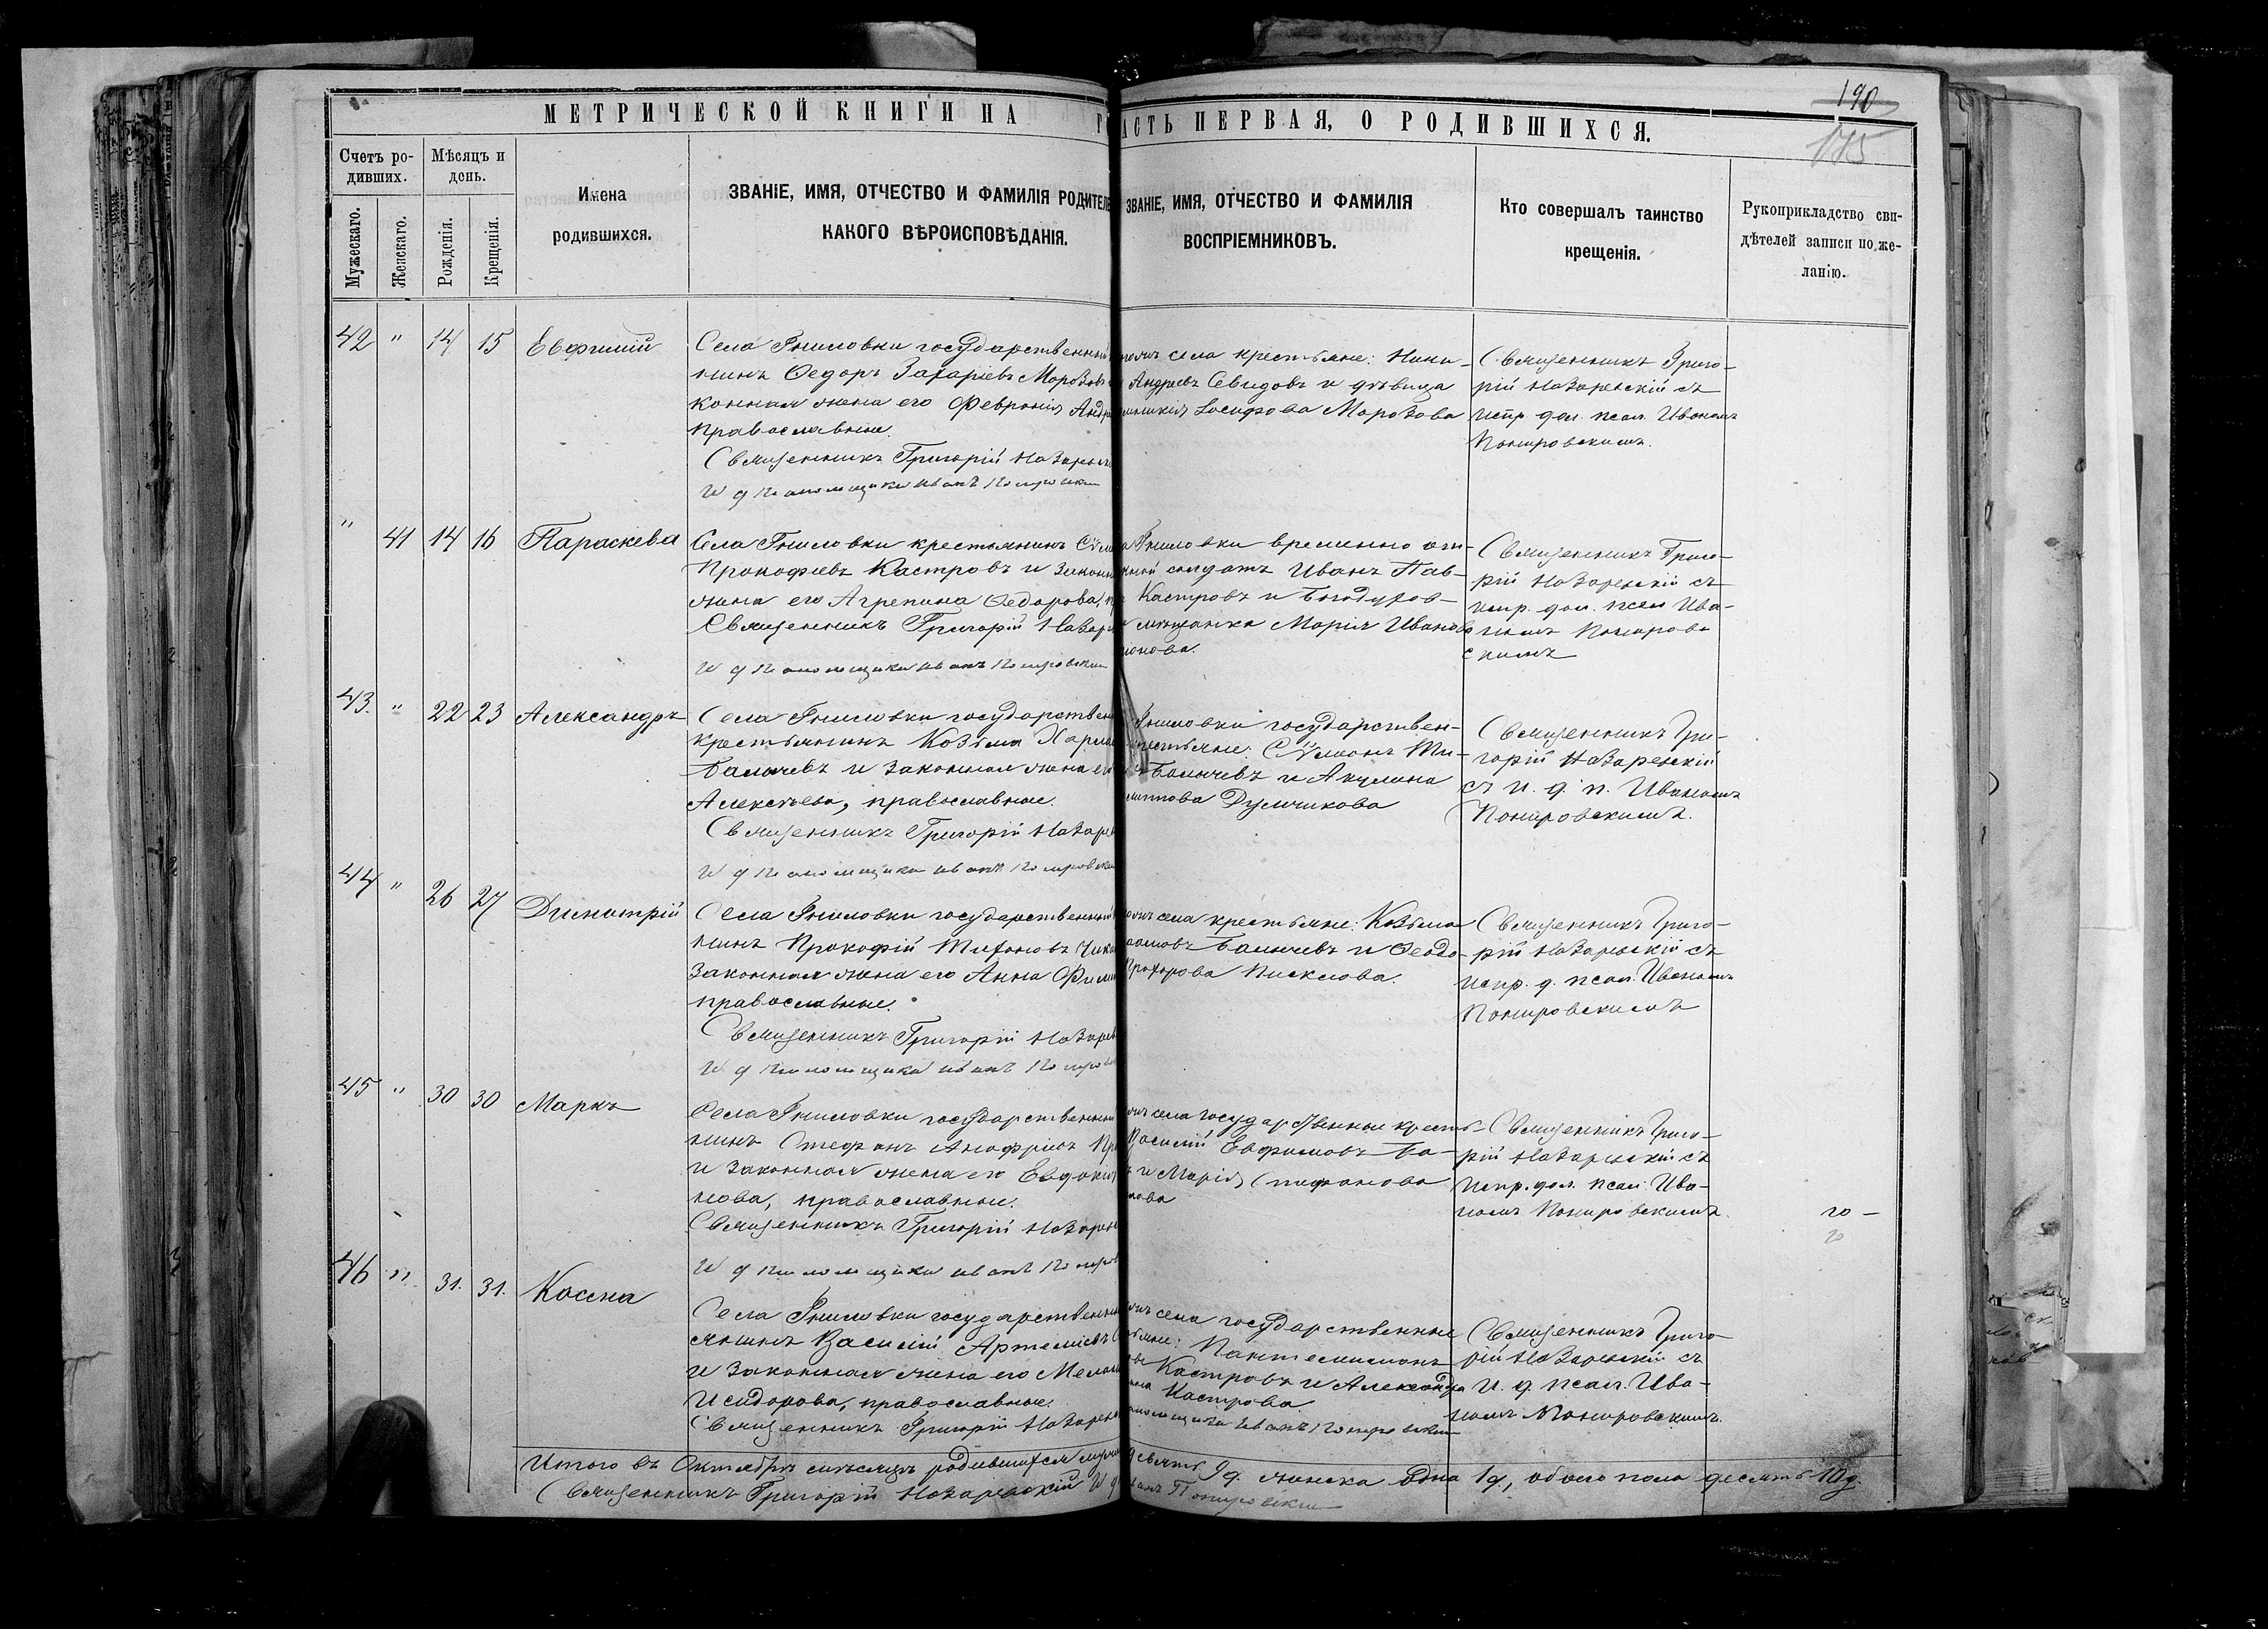 190
175
МЕТРИЧЕСКОЙ КНИГИ НА Г
АСТЬ ПЕРВАЯ, О РОДИВШИХСЯ.
Счетъ ро-
дившихъ.
Мѣсяцъ и
день.
Мужескаго.
Женскаго.
Рожденія.
Крещенія.
Имена
родившихся.
ЗВАНІЕ, ИМЯ, ОТЧЕСТВО И ФАМИЛІЯ РОДИТЕЛЕ
КАКОГО ВѢРОИСПОВѢДАНІЯ.
ЗВАНІЕ, ИМЯ, ОТЧЕСТВО И ФАМИЛІЯ
ВОСПРІЕМНИКОВЪ.
Кто совершалъ таинство
крещенія.
Рукоприкладство сви-
дѣтелей записи по же-
ланію.
42 " 14 15 Евфимій
Села Гниловки государственный
нинъ Ѳедоръ Захаріевъ Морозовъ
конная жена его Февронія Андр
православные.
Священникъ Григорій Назарев
И д Пономщика Иванъ
села крестьяне: Ники-
Андреевъ Севидовъ и дѣвица
Іосифова Морозова
Священникъ Григо-
рій Назаревскій съ
испр. дол. псал. Иваномъ
Понировскимъ.
" 41 14 16 Параскева
Села Гниловки крестьянинъ Сѵме
Прокофіевъ Кастровъ и законн
жена его Агрепина Ѳедорова, пр
Священникъ Григорій Назар
И д Пономщика Иванъ Понировскій
Гниловки временно от-
солдатъ Иванъ Пав-
Кастровъ и Богодухов-
мѣщанка Марія Иванова
онова.
Священникъ Григо-
рій Назаревскій съ
испр. дол. псал Ива-
номъ Понировс
скимъ
43. " 22 23 Александръ
Села Гниловки государствен
крестьянинъ Козьма Харла
Балычевъ и законная жена его
Алексѣева, православные.
Священникъ Григорій Назаре
И д Пономщика Иванъ Понировскій
Гниловки государствен-
крестьяне: Сѵмеонъ Ти-
Балычевъ и Акулина
Думчикова
Священникъ Гри-
горій Назаревскій
съ и. д. п. Иваномъ
Понировскимъ.
44 " 26 27 Димитрій
Села Гниловки государственный
нинъ Прокофій Тихоновъ Чика
законная жена его Анна Фили
православные.
Священникъ Григорій Назарев
И д Пономщика Иванъ Пониров
села крестьяне: Козьма
Балычевъ и Ѳеодо-
Прохорова Пискнова.
Священникъ Григо-
рій Назаревскій съ
испр. д. псал. Иваномъ
Понировскимъ
45 " 30 30 Маркъ
Села Гниловки государственный
нинъ Стефанъ Анофріевъ
и законная жена его Евдокія
нова, православные.
Священникъ Григорій Назарев
И д Пономщика Иванъ Пониров
села государственные кресть-
Василій Евфимовъ Ба-
и Марія Стефанова
нова
Священникъ Григо-
рій Назаревскій съ
испр. дол. псал. Ива-
номъ Понировскимъ.
46 " 31. 31. Косма
Села Гниловки государственны
янинъ Василій Артеміевъ
и законная жена его Мелан
Исидорова, православные.
Священникъ Григорій Назарев
села государственные
Пантелеимонъ
Кастровъ и Александра
Кастрова
Иванъ Понировскій
Священникъ Григо-
рій Назаревскій съ
и. д. псал. Ива-
номъ Понировскимъ.
Итого въ Октябрѣ мѣсяцѣ родившихся муж девять 9 д. женска одна 1 д, обоего пола десять 10 д.
Священникъ Григорій Назаревскій И д Иванъ Понировскій